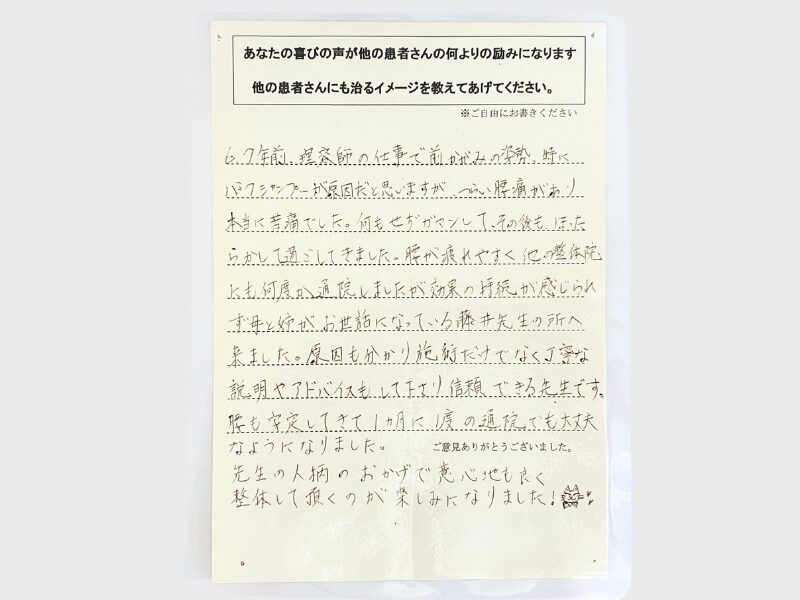 あなたの喜びの声が他の患者さんの何よりの励みになります
他の患者さんにも治るイメージを教えてあげてください。
※ご自由にお書きください
6、7年前、理容師の仕事で前かがみの姿勢、時に
バックシャンプーが原因だと思いますが、つらい腰痛があり
本当に苦痛でした。何もせずガマンして、その後も ほった
らかして過ごしてきました。腰が疲れやすく 他の整体院
にも何度か通院しましたが効果の持続が感じられ
ず母と姉がお世話になっている藤井先生の所へ
来ました。原因も分かり施術だけでなく丁寧な
説明やアドバイスもして下さり信頼できる先生です。
腰も安定してきて1ヵ月に1度の通院でも大丈夫
なようになりました。
ご意見ありがとうございました。
先生の人柄のおかげで居心地も良く
整体して頂くのが楽しみになりました!